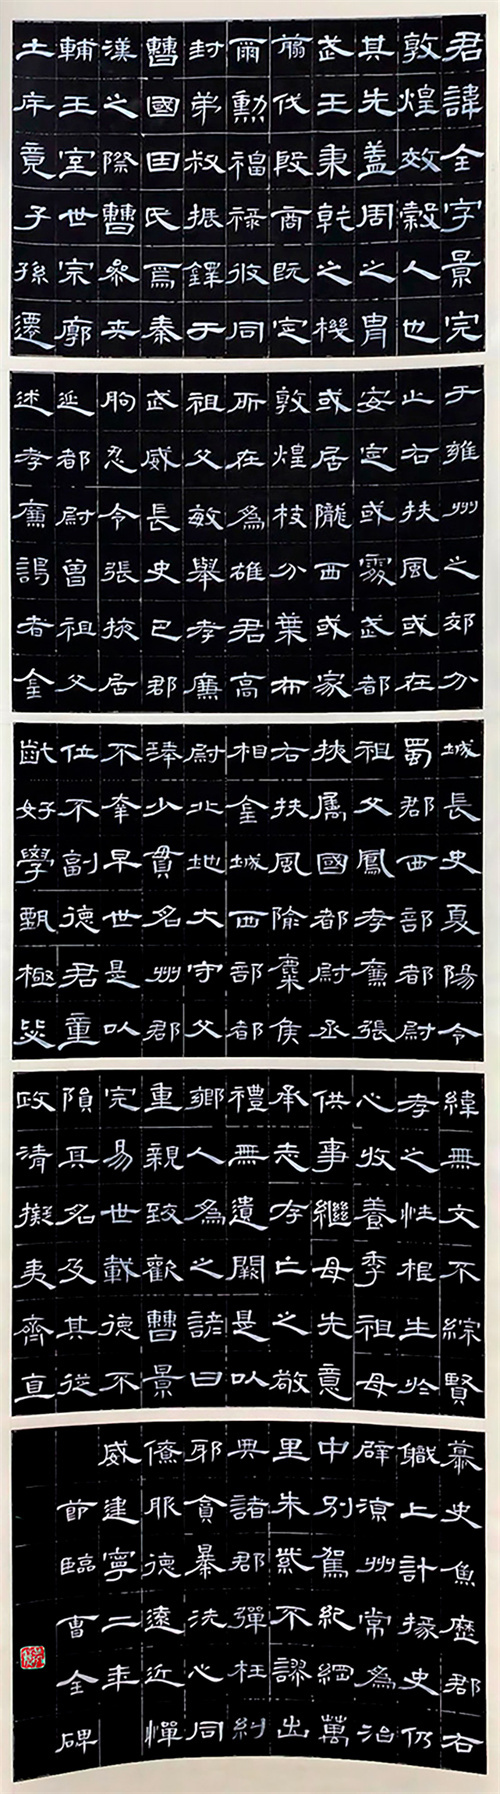 君諱全字景完
敦煌效穀人也
其先蓋周之胄
武王秉乾之機
翦伐殷商既定
爾勳福祿攸同
封弟叔振鐸于
曹國因氏焉秦
漢之際曹參夾
輔王室世宗廓
土斥竟子孫遷
于雍州之郊分
止右扶風或在
安定或處武都
或居隴西或家
敦煌枝分葉布
所在為雄君高
祖父敏舉孝廉
武威長史巴郡
朐忍令張掖居
延都尉曾祖父
述孝廉謁者金
城長史夏陽令
蜀郡西部都尉
祖父鳳孝廉張
掖屬國都尉丞
右扶風隃麋侯
相金城西部都
尉北地大守父
琫少貫名州郡
不幸早世是以
位不副德君童
齔好學甄極毖
緯無文不綜賢
孝之性根生於
心收養季祖母
供事繼母先意
承志存亡之敬
禮無遺闕是以
鄉人為之諺曰
重親致歡曹景
完易世載德不
隕其名及其從
政清擬夷齊直
慕史魚歷郡右
職上計掾史仍
辟涼州常為治
中別駕紀綱萬
里朱紫不謬出
典諸郡彈枉糾
邪貪暴洗心同
僚服德遠近憚
威建寧二年
節臨曹全碑